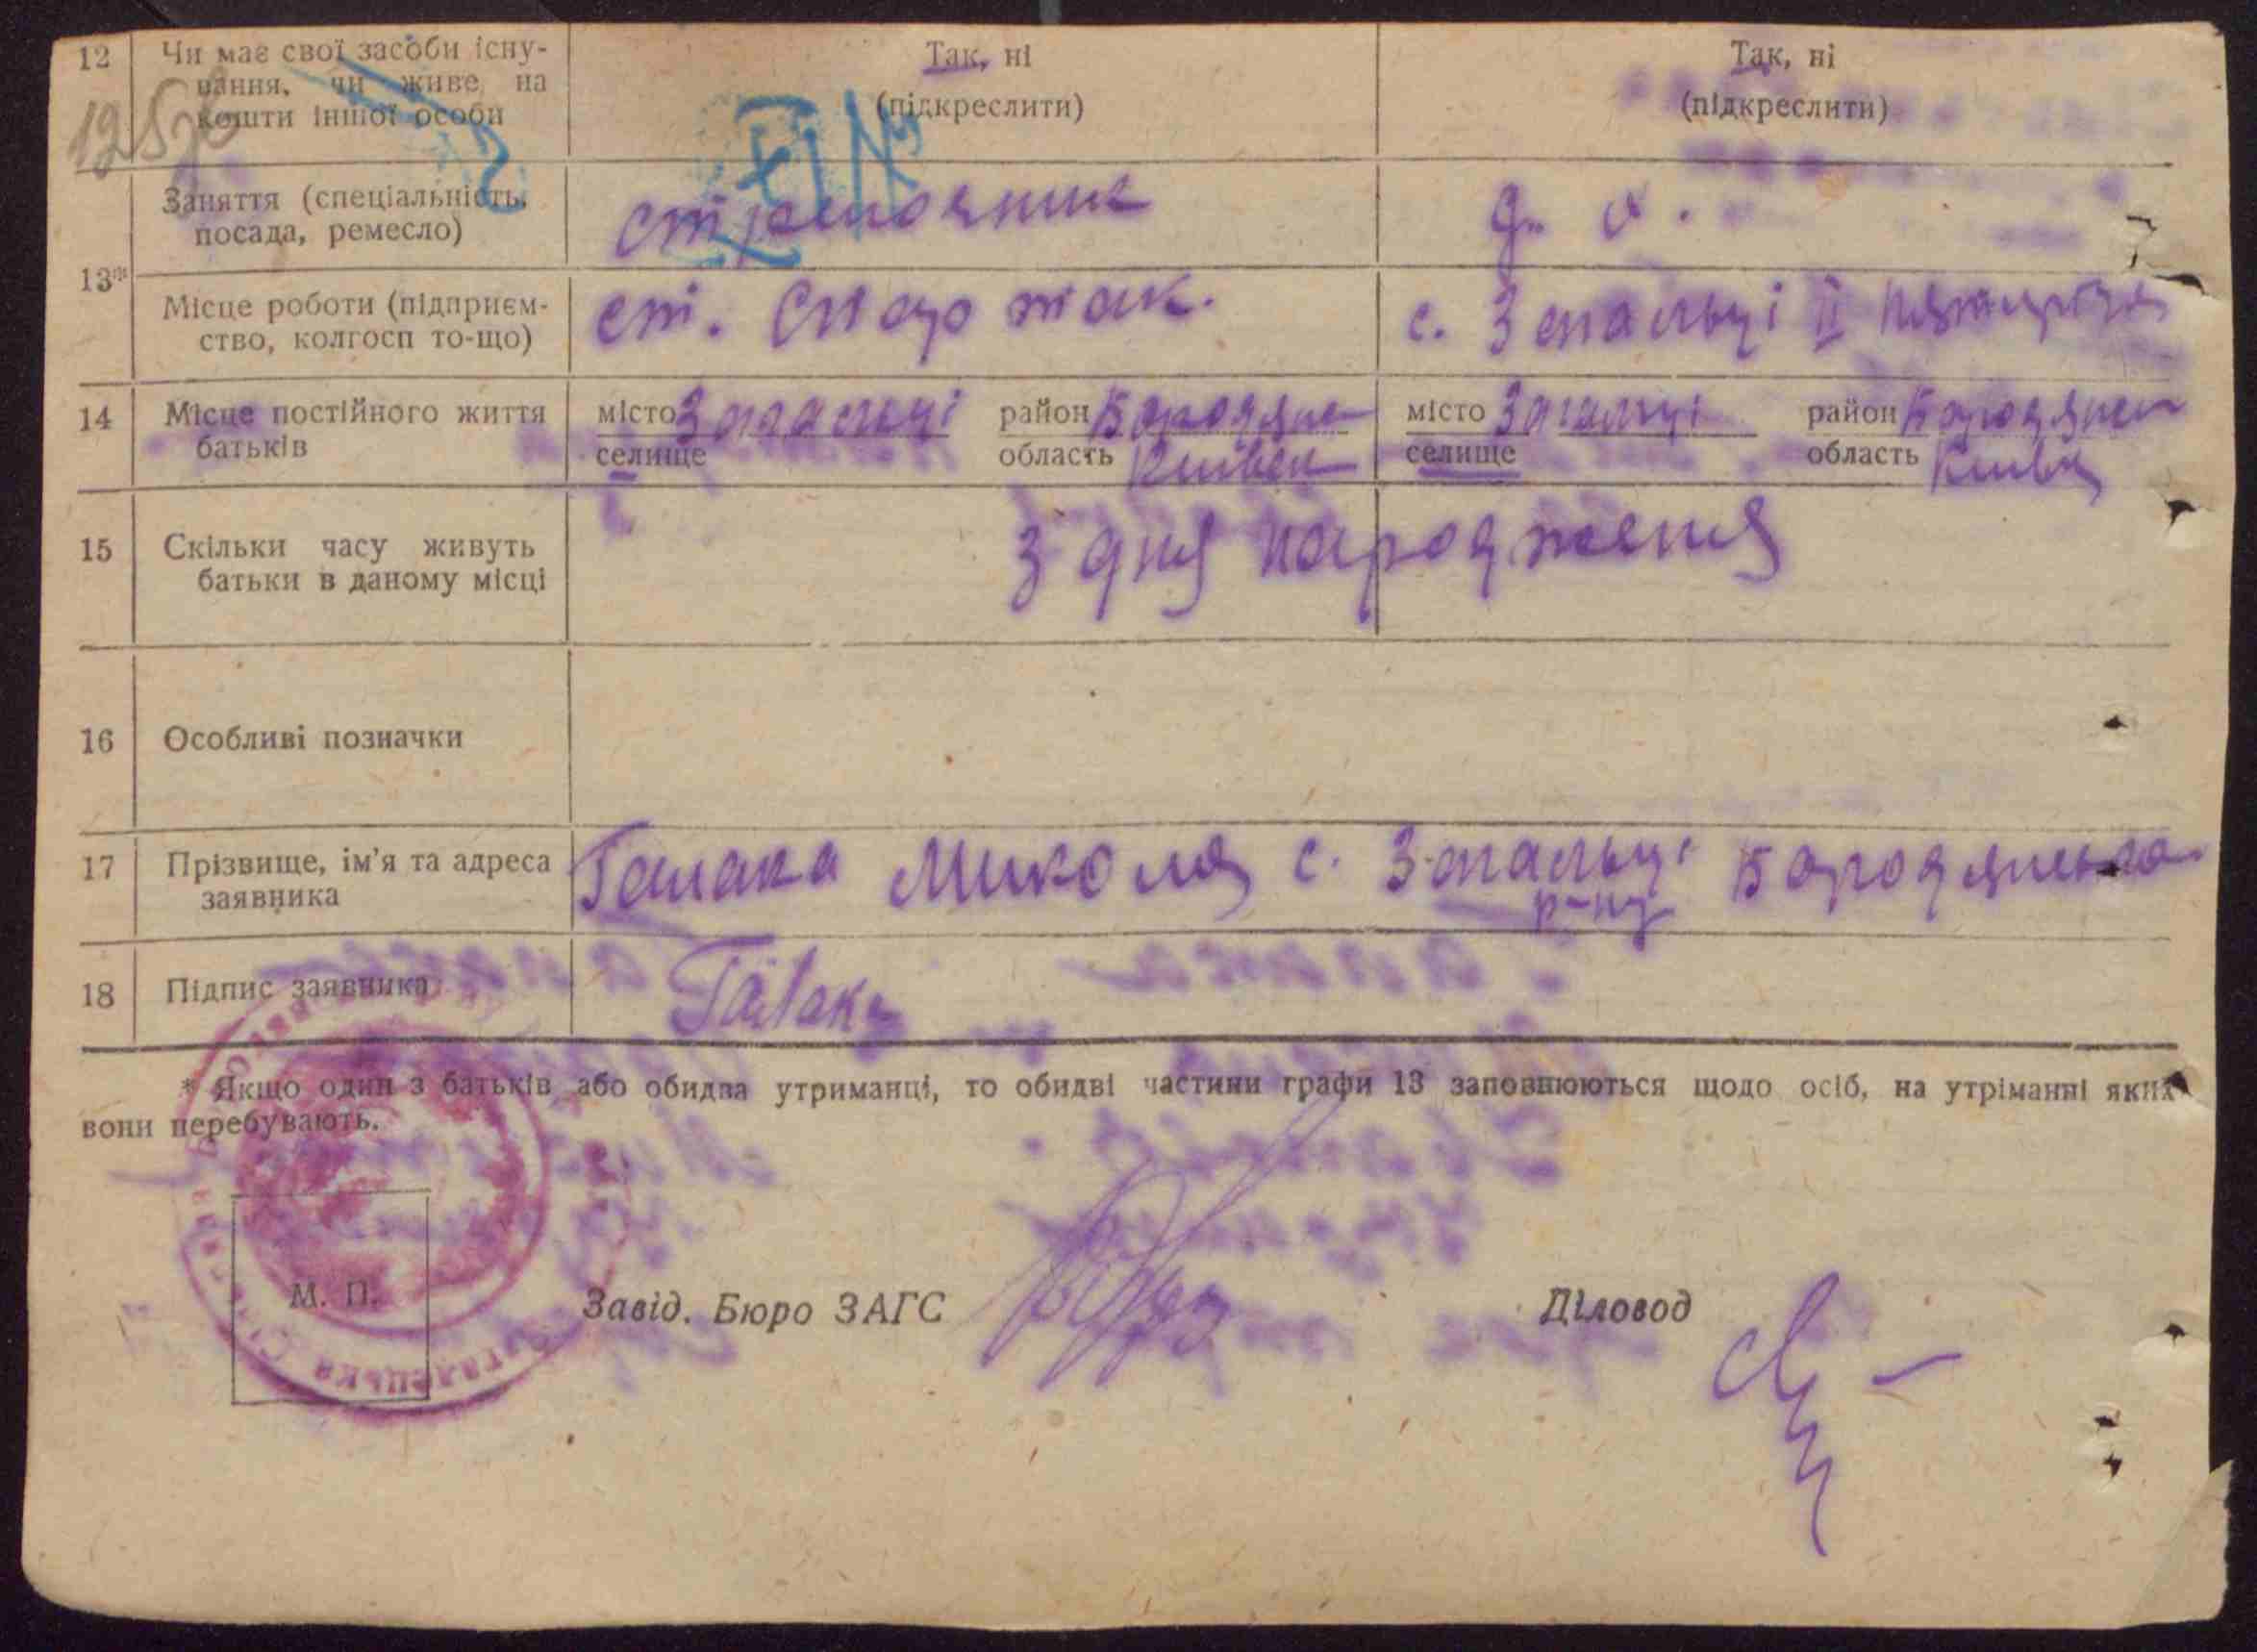 12 Чи має свої засоби існу-
вання, чи живе на
кошти іншої особи
Так, ні
(підкреслити)
Так, ні
(підкреслити)
13*
Заняття (спеціальність,
посада, ремесло)
д. г.
Місце роботи (підприєм-
ство, колгосп то-що)
ст.
с. Загальці II
14 Місце постійного життя
батьків
місто Загальці район Бородянс
селище область Київск
місто Загальці район Бородянск
селище область Київс
15 Скільки часу живуть
батьки в даному місці
З дня народження
16 Особливі позначки
17 Прізвище, ім’я та адреса
заявника
Галака Микола с. Загальці Бородянсько
р-ну
18 Підпис заявника
Галака
* Якщо один з батьків або обидва утриманці, то обидві частини графи 13 заповнюються щодо осіб, на утріманні яких
вони перебувають.
М. П.
Завід. Бюро ЗАГС
Діловод